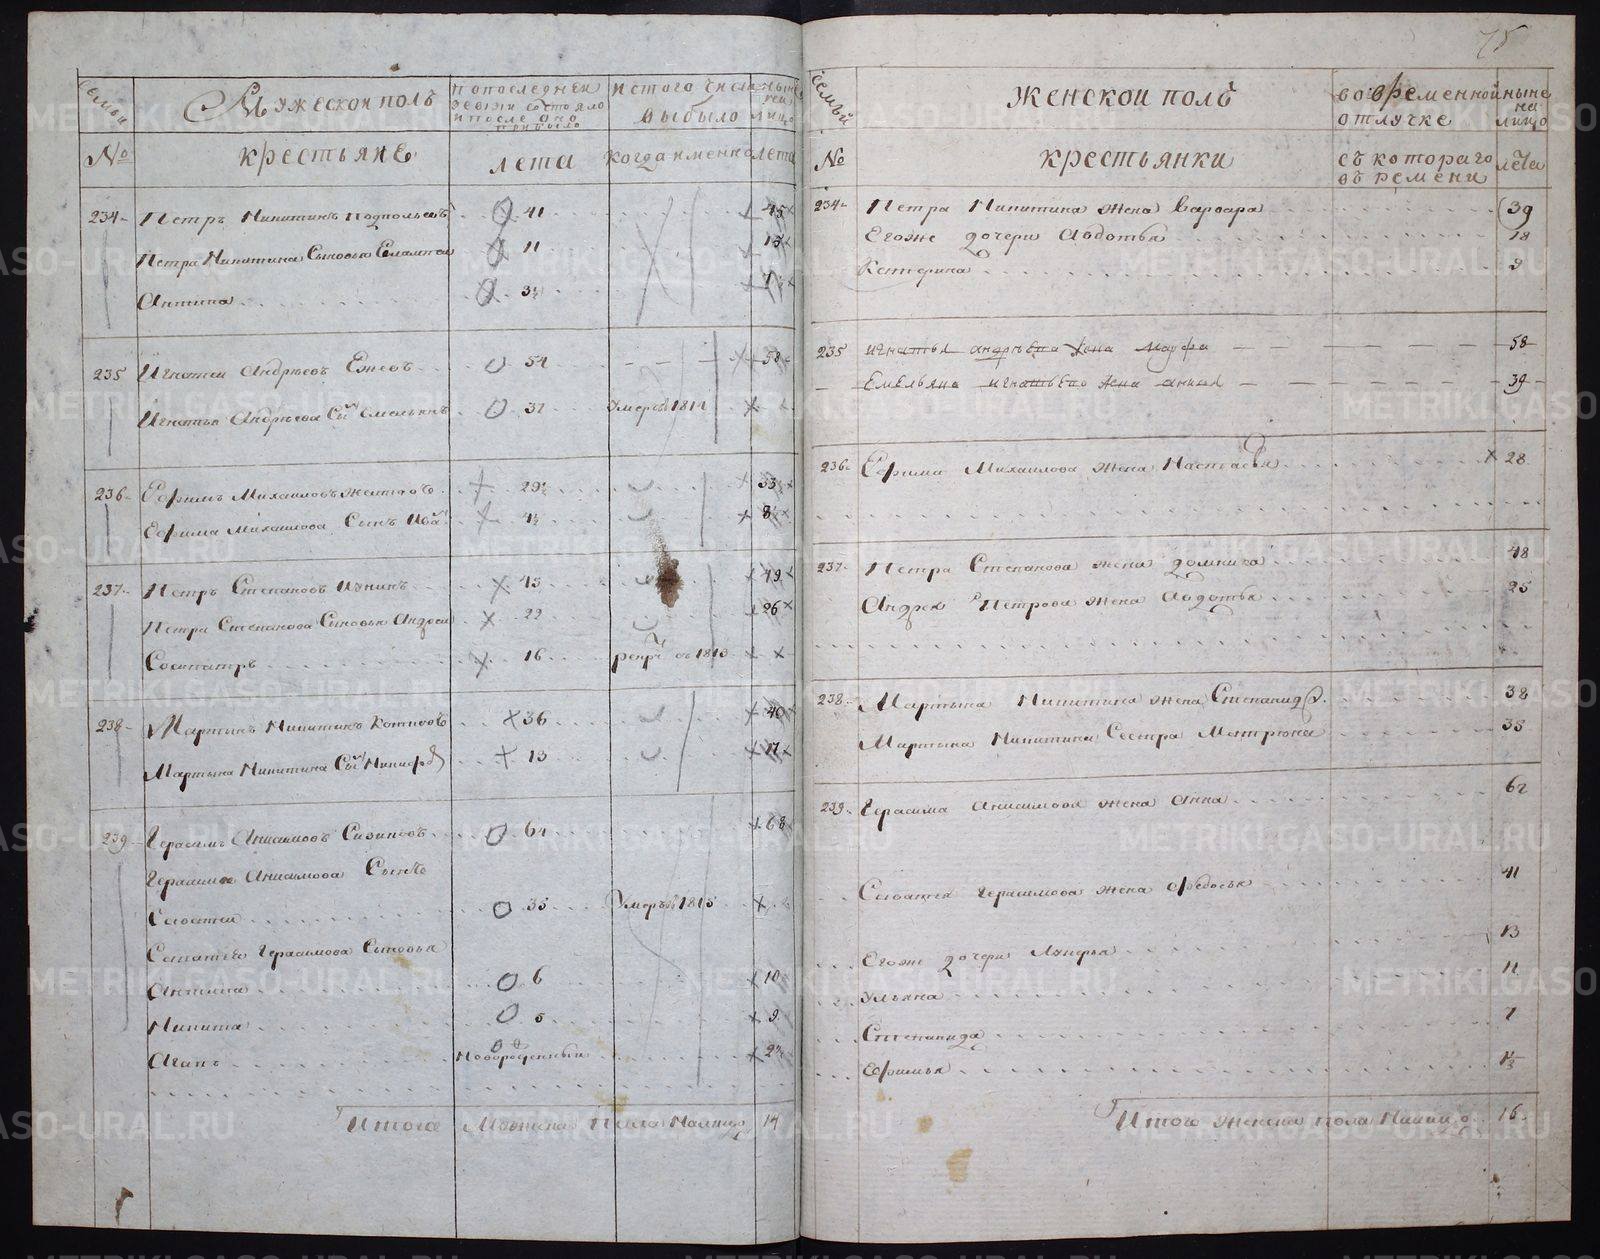 75
Семьи
Мужескои полъ
По последней ревизи состояло и после оно прибыло
Ис того числа выбыло
ныне на лицо
№
крестьяне
лета
когда именно
лета
234
Петръ Никитинъ
41
45
Петра Никитина Сыновья
11
15
Антипа
3½
7½
235
Игнатеи Андреевъ Ежевъ
54
58
Игнатья Андреева Сынъ Емельянъ
37
Умеръ в 1811
236
Ефимъ Михаиловъ
29½
33½
Ефима Михаилова Сынъ Иванъ
4½
8½
237
Петръ Степановъ
45
49
Петра Степанова Сыновья Андреи
22
26
Сосипатръ
16
рекр въ 1813
238
Мартынъ Никитинъ Котовъ
36
40
Мартына Никитина Сынъ Никифоръ
13
17
239
Герасимъ Анисимовъ
64
68
Герасима Анисимова Сынъ
Саватеи
35
Умеръ в 1813
Саватея Герасимова Сыновья
6
10
Никита
5
9
Агапъ
Новорожденныи
2½
Итого Мужеска Пола Налицо
14
Семьи
Женскои полъ
во временной отлучке
ныне на лицо
№
крестьянки
съ котораго времени
лета
234
Петра Никитина жена Варвара
39
Егоже дочери Авдотья
18
Катерина
9
235
Игнатья Андреева жена Марфа
58
Емельяна Игнатьева жена Анна
39
236
Ефима Михаилова жена Настасья
28
237
Петра Степанова жена Домника
48
Андрея Петрова жена Авдотья
25
238
Мартына Никитина жена Степанида
38
Мартына Никитина Сестра Матрена
35
239
Герасима Анисимова жена Анна
62
Саватея Герасимова жена Федосья
41
Егоже дочери Лукерья
13
Ульяна
11
Степанида
7
Ефимья
1½
Итого женска пола Налицо
16
METRIKI.GASO-URAL.RU